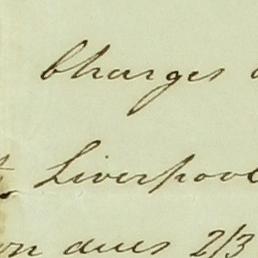 Charges
Liverpool
dues 2/3